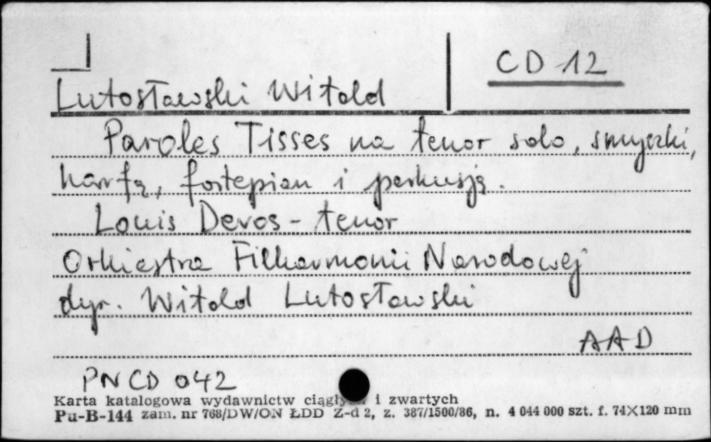 CD 12
Lutosławski Witold
Paroles Tisses na tenor solo, smyczki,
harfę, fortepian i perkusję.
Louis Devos - tenor
Orkiestra Filharmonii Narodowej
dyr. Witold Lutosławski
AAD
PNCD 042
Karta katalogowa wydawnictw i zwartych
Pu-B-144 zam. nr 768/DW/ON ŁDD Z-d 2, z. 387/1500/86, n. 4 044 000 szt. f. 74X120 mm